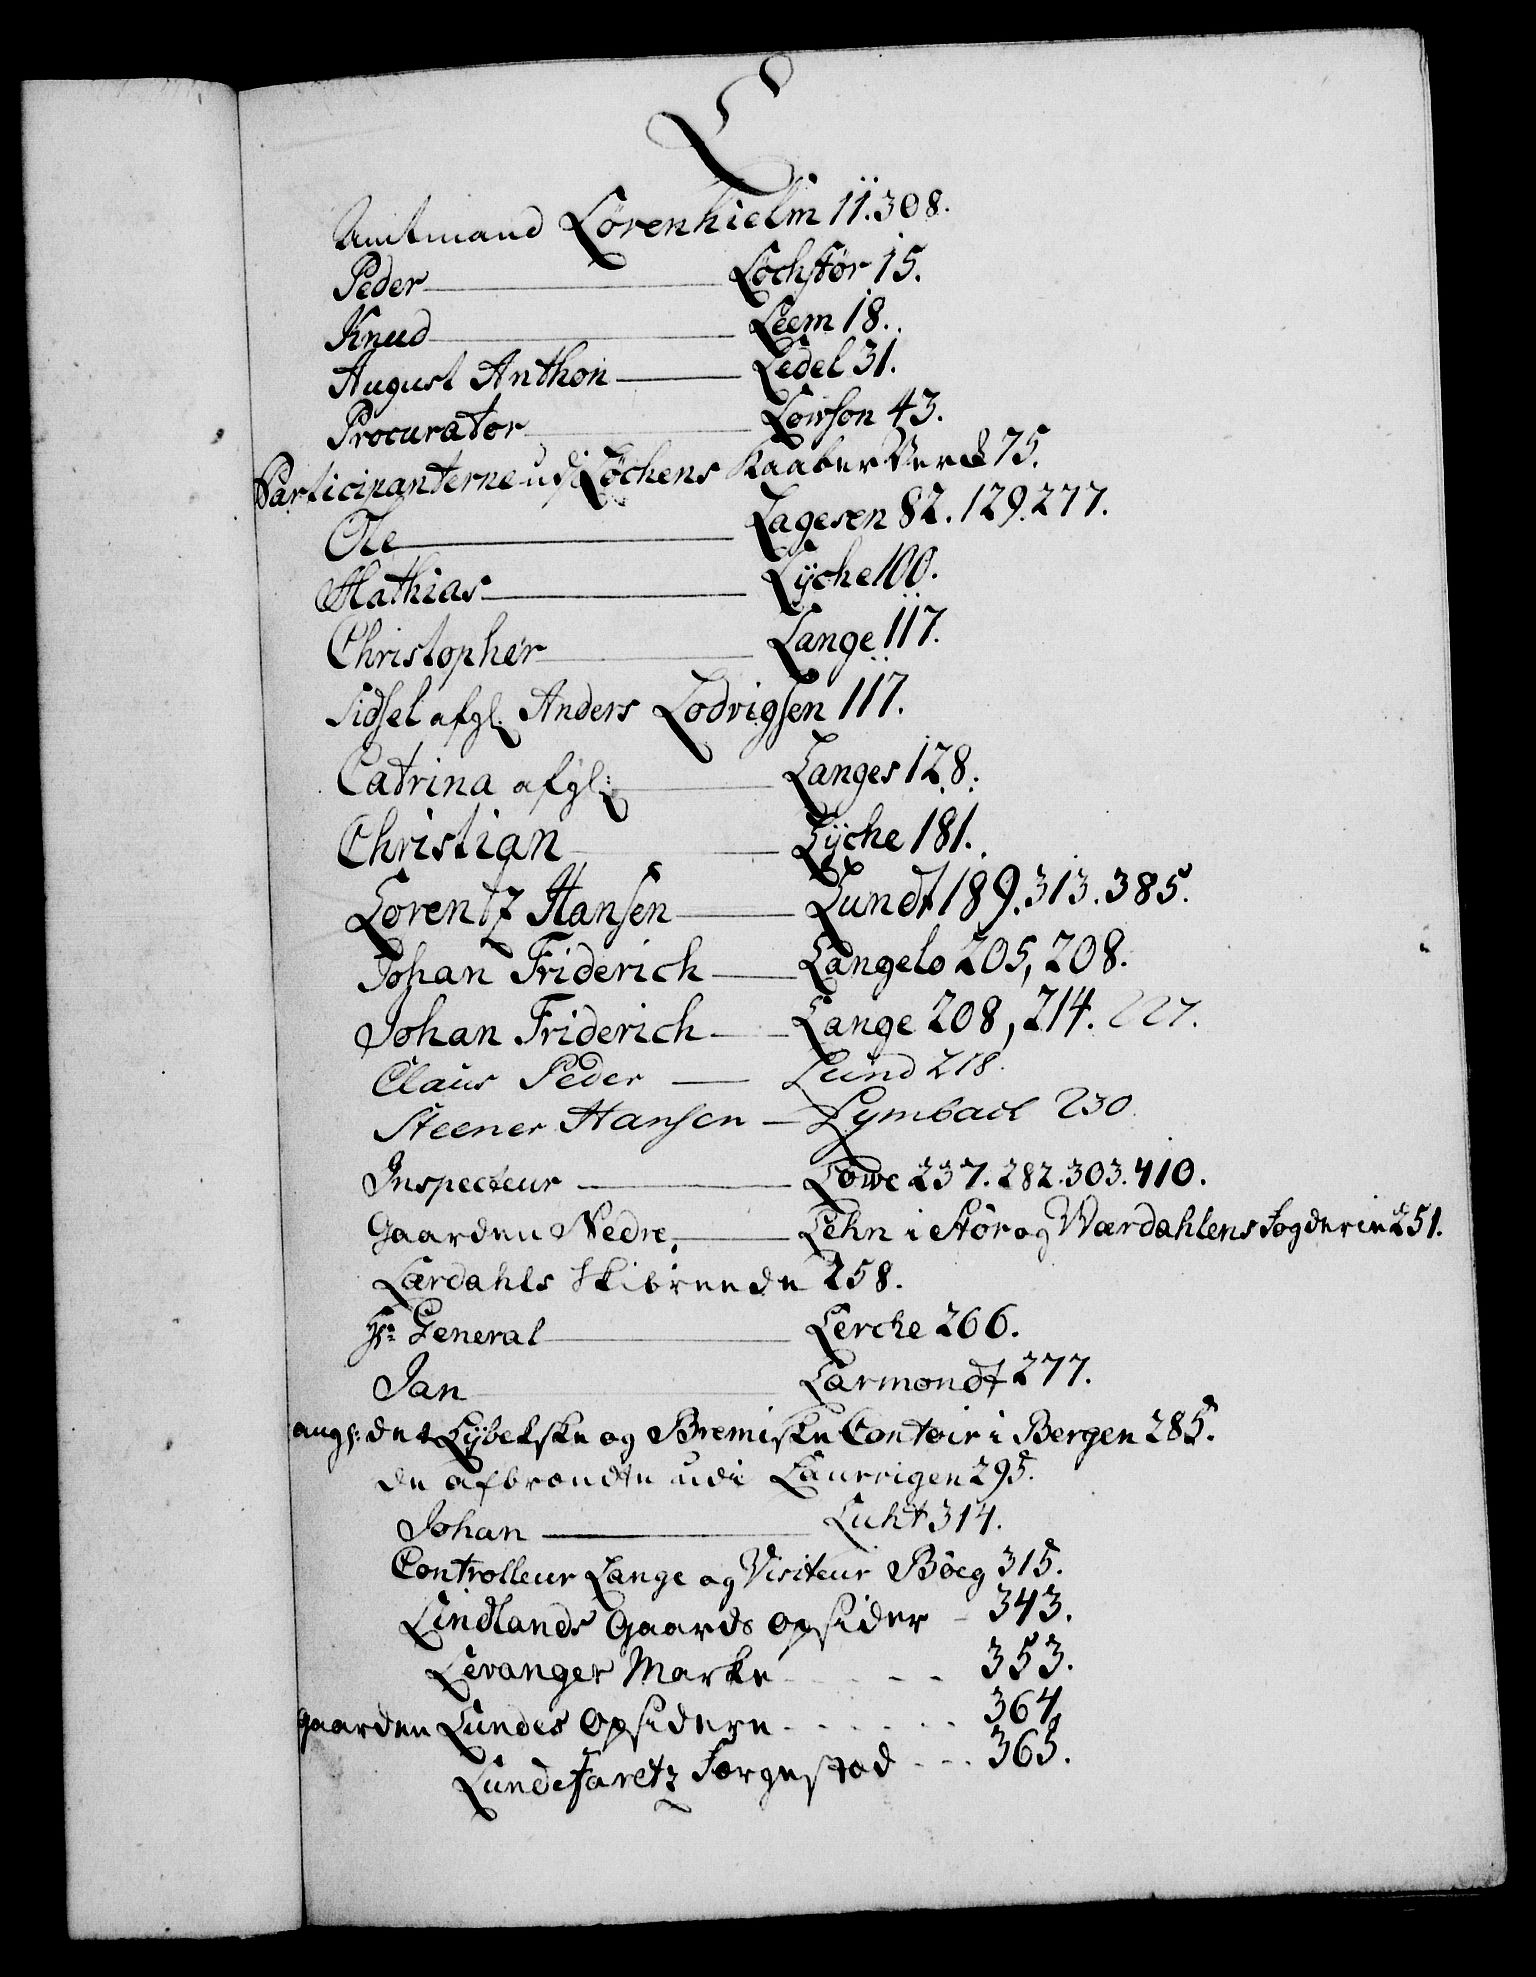 L
Amtmand Lövenhielm 11.308.
Peder Lochstør 15.
Knud Leem 18.
August Anthon Ledel 31.
Procurator Lowson 43.
Participanterne udj Løchens Kaaber Verck 75.
Ole Lagesen 82. 129. 277.
Mathias Lÿche 100.
Christopher Lange 117.
Sidsel afgl. Anders Lodvigsen 117.
Catrina afgl: Langes 128.
Christian Lÿche 181.
Lorentz Hansen Lundt 189. 313. 385.
Johan Friderich Langelo 205, 208.
Johan Friderich Lange 208, 214. 227.
Claus Peder Lund 218.
Steener Hansen Lymbach 230.
Inspecteur Løwe 237. 282. 303. 410.
Gaarden Nedre Lehn i Stör og Værdahlens Fogderie 251.
Lærdahls Skibreede 258.
Hr: General Lerche 266.
Jan Larmondt 277.
ang: det Lÿbekske og Bremiske Contoir i Bergen 285.
de afbrændte udi Laurvigen 295.
Johan Lucht 314.
Controlleur Lange og Visiteur Böeg 315.
Lindlands Gaards opsider 343.
Levanger Marke 353.
gaarden Lundes opsidere 364.
Lundefaretz Færgestad 365.